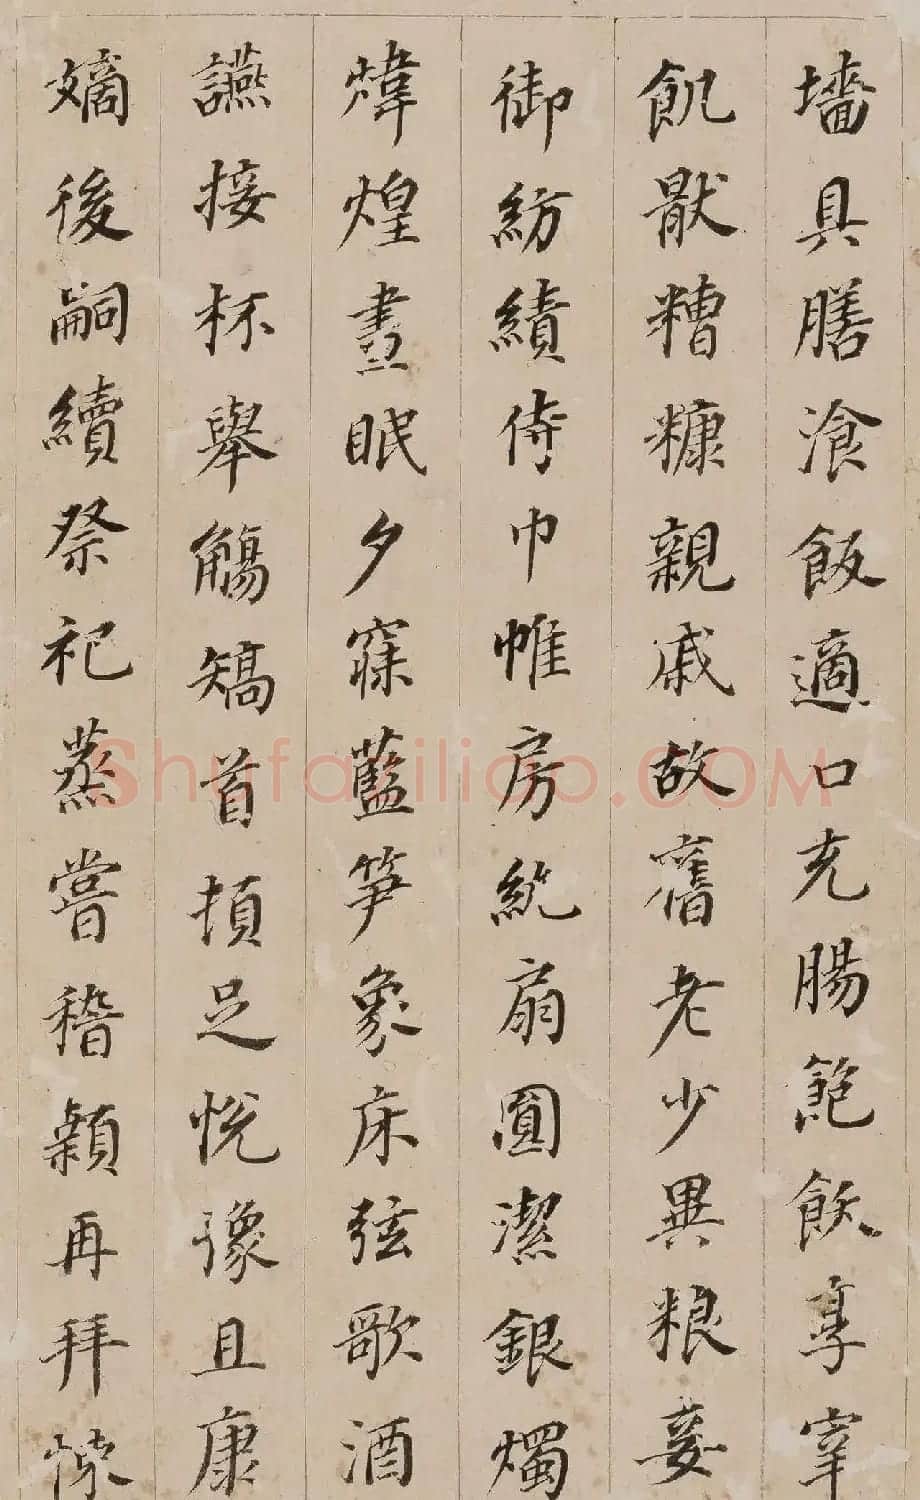 墻具膳飡飯適口充腸飽飫享宰
飢猒糟糠親戚故舊老少異粮妾
御紡績侍巾帷房紈扇圓潔銀燭
煒煌晝眠夕寐藍笋象床弦歌酒
讌接杯舉觴矯首頓足悅豫且康
嫡後嗣續祭祀蒸嘗稽顙再拜悚
Shufaziliao.COM